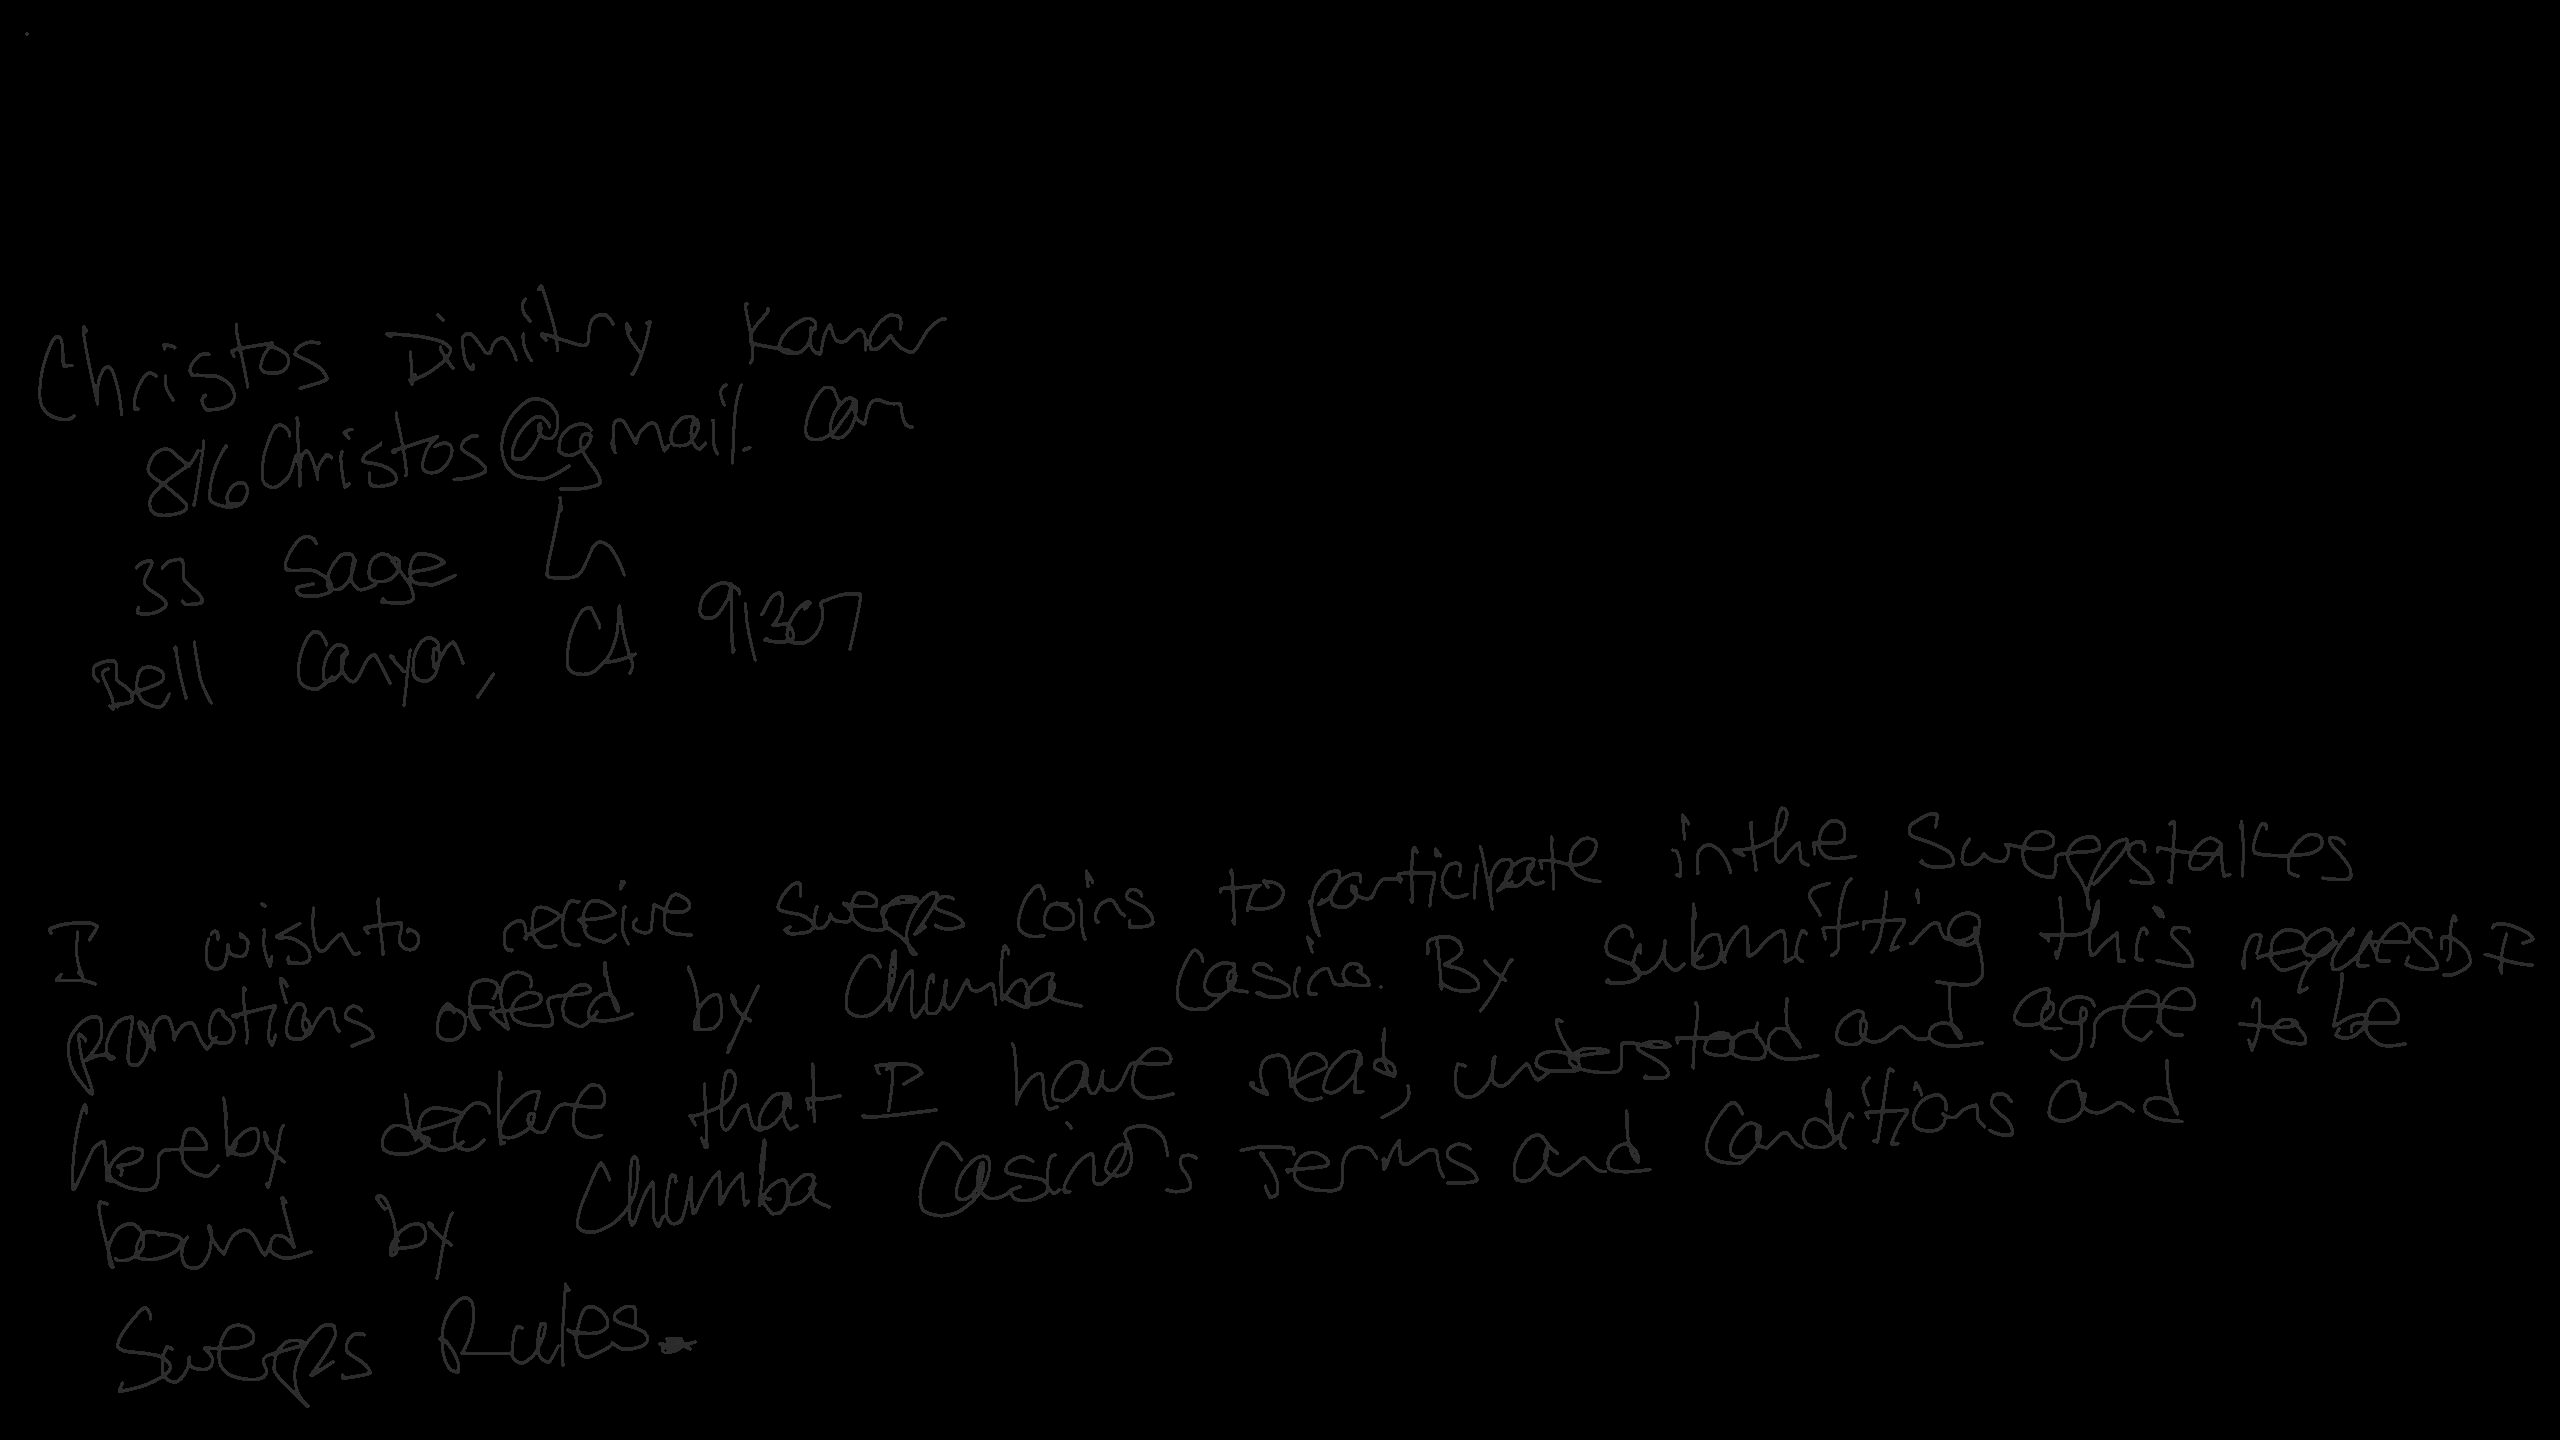 Christos Dimitry Kamar
816Christos@gmail.com
33 Sage Ln
Bell Canyon, CA 91307
I wish to receive Sweeps Coins to participate in the Sweepstakes
promotions offered by Chumba Casino. By submitting this request, I
hereby declare that I have read, understood and agree to be
bound by Chumba Casino's Terms and Conditions and
Sweeps Rules.